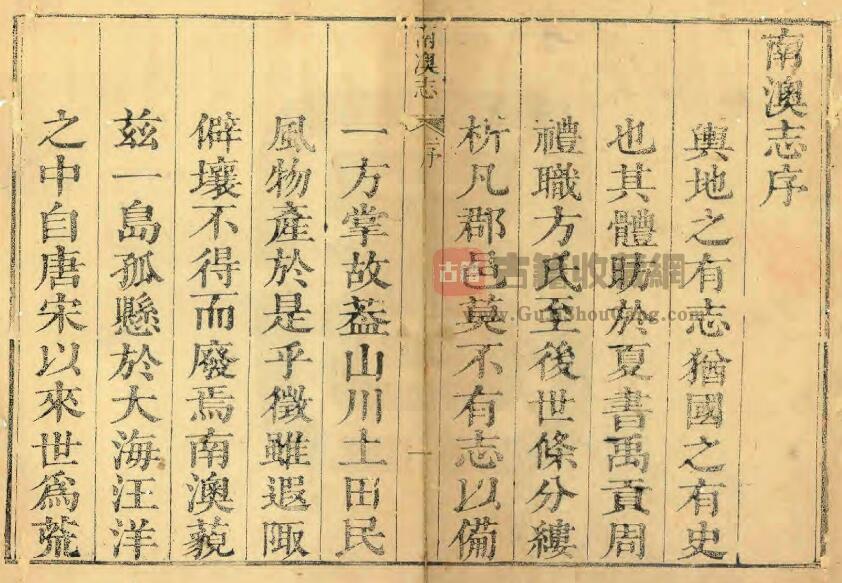 南澳志序
輿地之有志猶國之有史
也其體昉於夏書禹貢周
禮職方氏至後世條分縷
析凡郡邑莫不有志以備
南澳志
序
一
一方掌故葢山川土田民
風物產於是乎徵雖遐陬
僻壤不得而廢焉南澳藐
茲一島孤懸於大海汪洋
之中自唐宋以來世爲荒
古籍
古籍收購網
www.GuJiShouGong.com